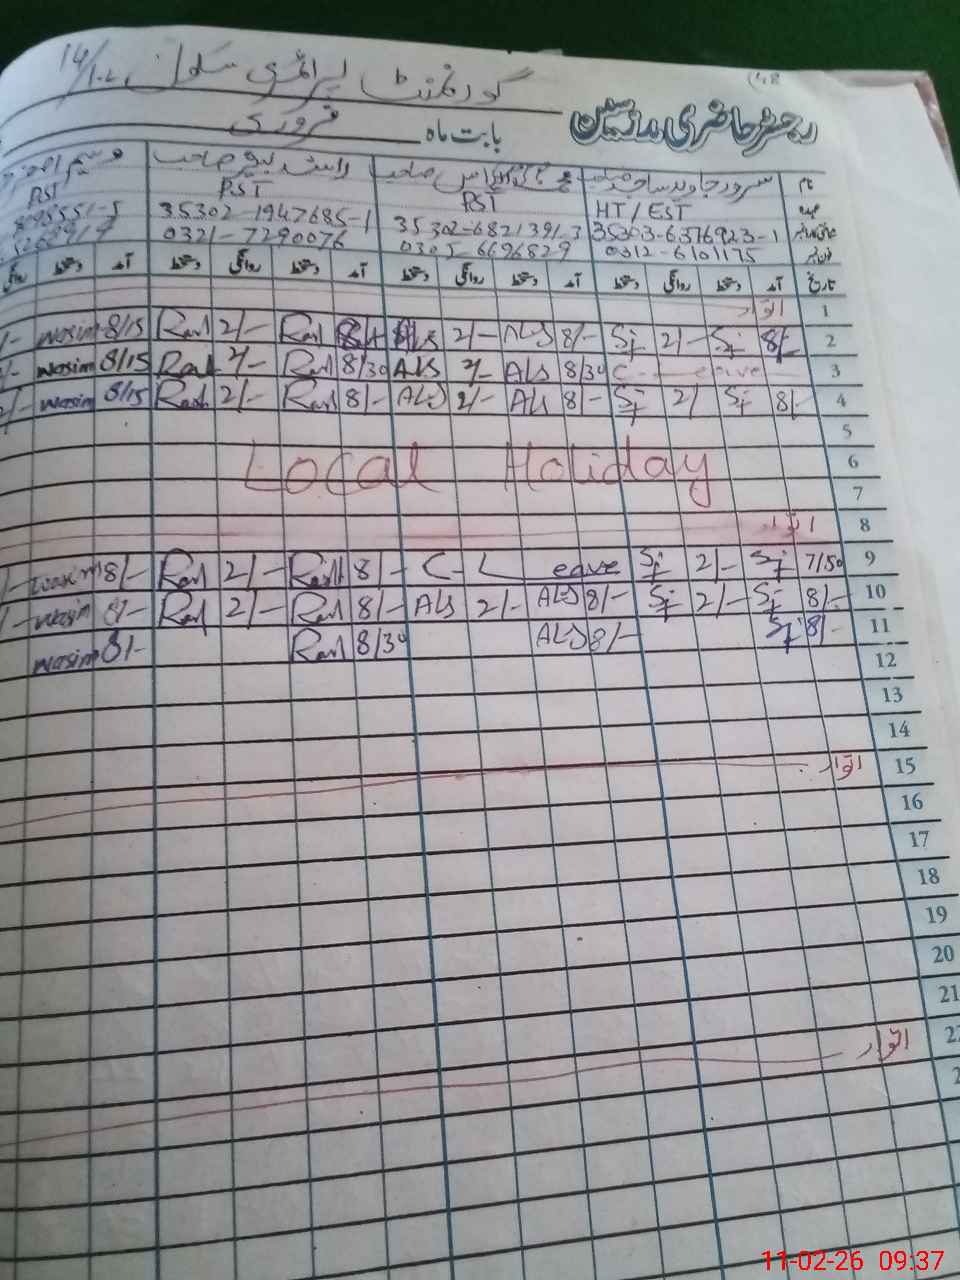 گورنمنٹ پرائمری سکول 14/1-L
رجسٹر حاضری مدرسین بابت ماہ فروری
نام سرور جاوید ساجد صاحب راشد بشیر صاحب وسیم احمد
عہدہ HT/EST PST PST PST
35303-6376923-1 35302-6821391-3 35302-1947685-1
0312-6101175 0305-6696829 0321-7290076
تاریخ آمد دستخط روانگی دستخط آمد دستخط روانگی دستخط آمد دستخط روانگی دستخط آمد دستخط روانگی
1 اتوار
2 8/- Sj 2/- Sj 8/- ALS 2/- Rash 2/- Rash 8/15 wasim
3 C- eave 8/30 ALS 2/- ALS 8/30 Rash 2/- Rash 8/15 wasim
4 8/- Sj 2/ Sj 8/- ALS 2/- ALS 8/- Rash 2/- Rash 8/15 wasim
5
6 Local Holiday
7
8 اتوار
9 7/50 Sj 2/- Sj C-L eave 8/- Rash 2/- Rash 8/- wasim
10 8/- Sj 2/- Sj 8/- ALS 2/- ALS 8/- Rash 2/- Rash 8/- wasim
11 8/- Sj 8/- ALS 8/30 Rash 8/- wasim
12
13
14
15 اتوار
16
17
18
19
20
21
22 اتوار
11-02-26 09:37